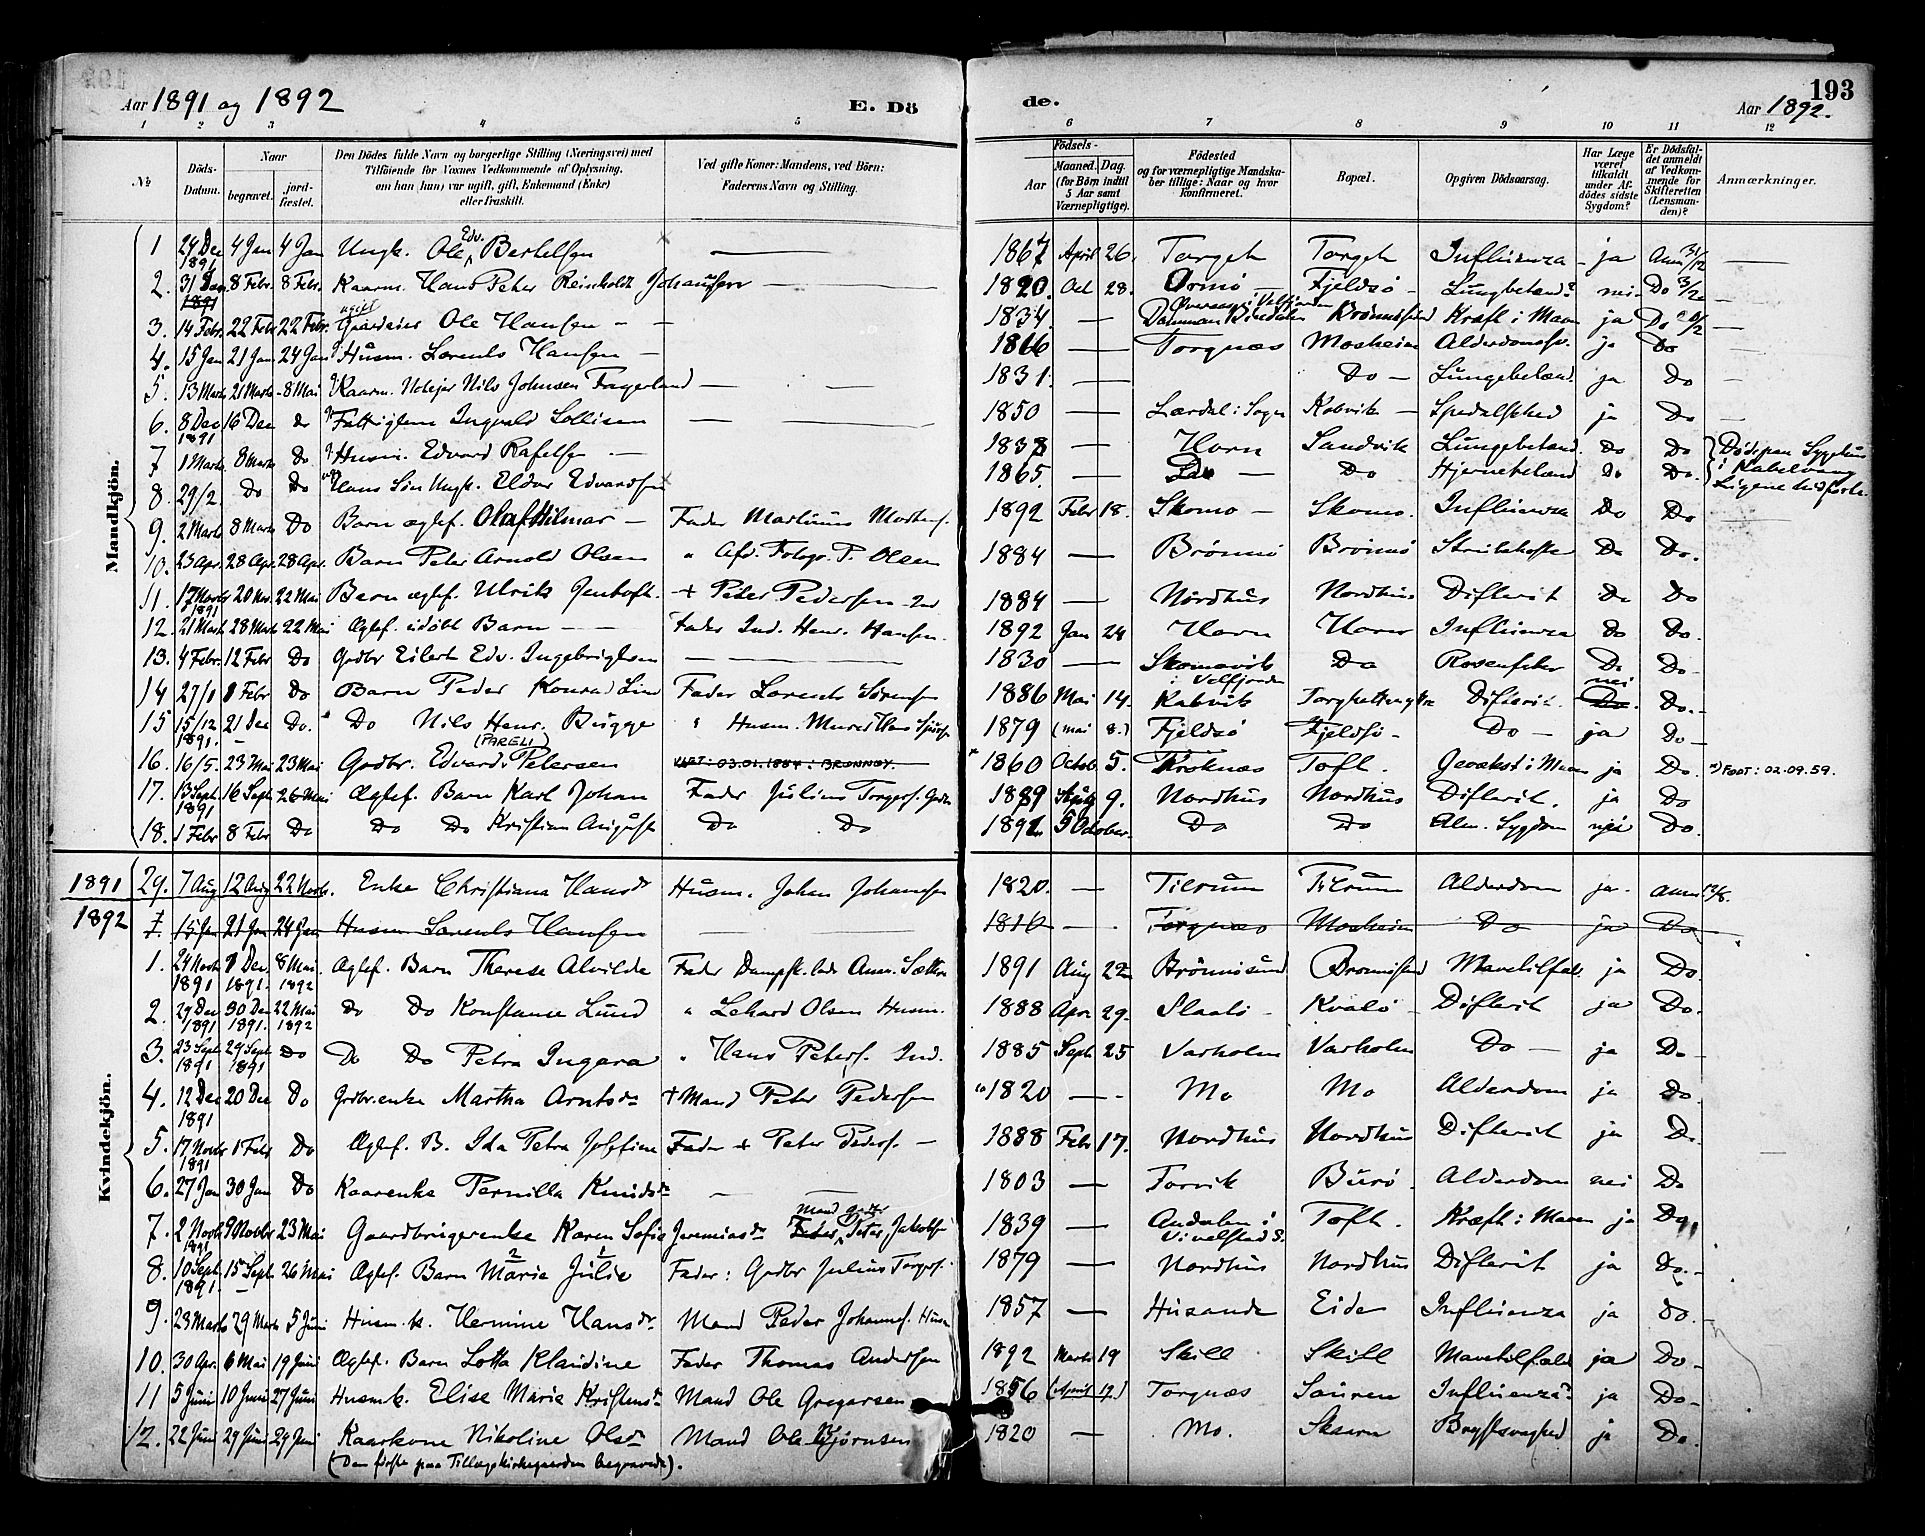 193
Aar 1891 og 1892 E. Dö de. Aar 1892.
1 2 3 4 5 6 7 8 9 10 11 12
No Döds-Datum. Naar begravet. jord-fæstet. Den Dödes fulde Navn og borgerlige Stilling (Næringsvei) med Tilföiende for Voxnes Vedkommende af Oplysning, om han (hun) var ugift, gift, Enkemand (Enke) eller fraskilt. Ved gifte Koner: Mandens, ved Börn: Faderens Navn og Stilling. Födsels- Aar Maaned. Dag. (for Börn indtil 5 Aar samt Værnepligtige). Födested og for værnepligtige Mandskaber tillige: Naar og hvor konfirmeret. Bopæl. Opgiven Dödsaarsag. Har Læge været tilkaldt under Afdödes sidste Sygdom? Er Dödsfaldet anmeldt af Vedkommende for Skifteretten (Lensmanden)? Anmærkninger.
Mandkjön.
1 24 Dec 1891 4 Jan 4 Jan Ungk. Ole Edv. Bertelsen — 1867 April 26. Torget Torget Influenza ja Anm 31/12 —
2. 31 Dec 1891 8 Febr. 8 Febr. Kaarm. Hans Peter Reinholdt Johansen — 1820. Oct 28. Ormö — Fjeldsö - Lungebetænd? nei Do 3/2 —
3. 14 Febr. 22 Febr 22 Febr. ugift Gaardeier Ole Hansen — 1834. — Brönnösund Kræft i Maven ja Do —
4. 15 Jan 21 Jan 24 Jan Husm. Lorents Hansen — 1816 — Torgnæs Mosheim Alderdomssv. ja Do
5. 13 Marts 21 Marts 8 Mai Kaarm. Nils Johnsen Fagerland — 1831. — Do — Lungebetænd. ja Do —
6. 8 Dec 1891 16 Dec do Fattiglem Ingvald Sollisen — 1850 — Lærdal i Sogn Kobvik — Spedalskhed ja Do —
7 1 Marts 8 Marts Do Husm. Edvard Rafelsen — 1838 — Horn Sandvik Lungebetænd. Do Do Döde paa Sygehus
8. 29/2 Do Do Hans Sön Ungk. Eldor Edvardsen 1865. — Do — Do Hjernebetænd Do Do. i Kabelvaag Ligene hidförte
9. 2 Marts 8 Marts Do Barn ægtef. Olaf Hilmar — Fader Martinus Mortens. 1892 Febr 18. Skomo — Skomo. Influenza Do Do —
10. 23 Apr. 28 Apr. 28 Apr. Barn Peter Arnold Olsen " Afd. Fotogr. P. Olsen 1884 — Brönnö Brönnö Strubehoste Do Do.
11. 17 Novbr 1891 20 Nov. 22 Mai Barn ægtef. Ulrik Jentoft. + Peter Pedersen 1884 — Nordhus Nordhus Difterit Do Do
12. 21 Marts 28 Marts 22 Mai Ægtef. udöbt Barn — — Fader Ind. Henr. Hansen. 1892 Jan 24 Horn Horn Influenza Do Do.
13. 4 Febr. 12 Febr Do Gdbr Eilert Edv. Ingebrigtsen — 1830 — Skomovik i Velfjorden Do Do Do —
14 27/1 8 Febr Do Barn Peder Konrad Lind Fader Lorents Sörensen 1886 Mai 14. Kabvik Difterit. nei Do. —
15 15/12 1891. 21 Dec Do. " Do Nils Henr. Bugge " Husm. 1879 (mai 8.) Fjeldsö Fjeldsö - Do — ja Do —
16. 16/5. 23 Mai 23 Mai Gdbr. Edvard (PARELI) Petersen 03.01.1884: BRØNNØY. * 1860 Octob 5. Kroknæs Toft. Gevækst i Maven ja Do. *) FØDT: 02.09.59.
17. 13 Sept. 1891 16 Sept 26 Mai Ægtef. Barn Karl Johan Fader Julius Torgers. Gdbr 1889 9. Nordhus Nordhus Difterit. ja Do
18. 1 Febr 8 Febr Do Do Do Kristian August Do Do 1891 5 October. Do Do Alm. Sygdom nei Do.
1891 29. 7 Aug 12 Aug 22 Novbr. Enke Christiana Hansdr Husm. Johan Johansen 1820. — Tilrum Tilrum Alderdom ja. anm 12/8.
1892 1. 15 Jan 21 Jan 24 Jan Husm Lorents Hansen — 1816 — Torgnæs Mosheim Do ja Do
Kvindekjön.
1. 24 Novbr 1891 8 Dec. 1891. 8 Mai 1892 Ægtef. Barn Therese Alvilde Fader 1891 Aug 22 Brönnösund Brönnösund Mavetilfæl. ja Do.
2. 29 Dec 1891 30 Dec 1891. 22 Mai 1892 Do Do Konstanse Lund " Lehard Olsen Husm. 1888 Apr 29. Slaalö - Kvalö - Difterit ja Do.
3. 23 Sept. 1891 29 Sept 1891 Do Do Do Petra Ingara " Hans Peters. Ind. 1885 Sept 25 Varholm Varholm Do — ja Do —
4. 12 Dec 1891 20 Dec Do Gdbr. enke Martha Arntsdr + Mand Peter Pedersen 1820 — Mo Mo Alderdom ja Do.
5. 17 Novbr 1891 1 Febr Do Ægtef. B. Ida Petra Josefine Fader + Peter Peders. — 1888 Febr 17. Nordhus Nordhus Difterit ja Do
6. 27 Jan 30 Jan Do Kaarenke Pernilla Knudsdr — 1803 — Forvik Burö. Alderdom nei Do
7. 2 Novbr 1891 9 Novbr 23 Mai Gaardbrugerenke Karen Sofie Jeremiasdr Mand Gdbr Peter Jakobsen 1839 — Andalen i Vivelstad S. Toft. Kræft i Maven ja Do
8. 10 Sept. 1891. 15 Sept. 26 Mai Ægtef. Barn Marie 2 Julie 1 Fader: Gdbr Julius Torgers. 1879 — Nordhus Nordhus Difterit ja Do. —
9. 23 Marts 29 Marts 5 Juni Husm. k. Hermine Hansdr. Mand Peder Johanns. Husm 1857 — Husande Eide Influenza ja Do. —
10. 30 Apr. 6 Mai 19 Juni Ægtef. Barn Lotta Klaudine Fader Thomas Andersen 1892 Marts 19 Skill Skill Mavetilfæld ja Do —
11 5 Juni 10 Juni 27 Juni Husm k. Elise Marie Kristensdr Mand Ole Gregersen 1856 (April 12.) Torgnæs Sauren Influenza? ja Do —
12. 22 Juni 29 Juni 29 Juni Kaarkone Nikoline Olsdr Mand Ole Björnsen 1820 — Mo. Skaren Brystsvaghed ja Do.
(Den förste paa Tillægskirkegaarden begravede).